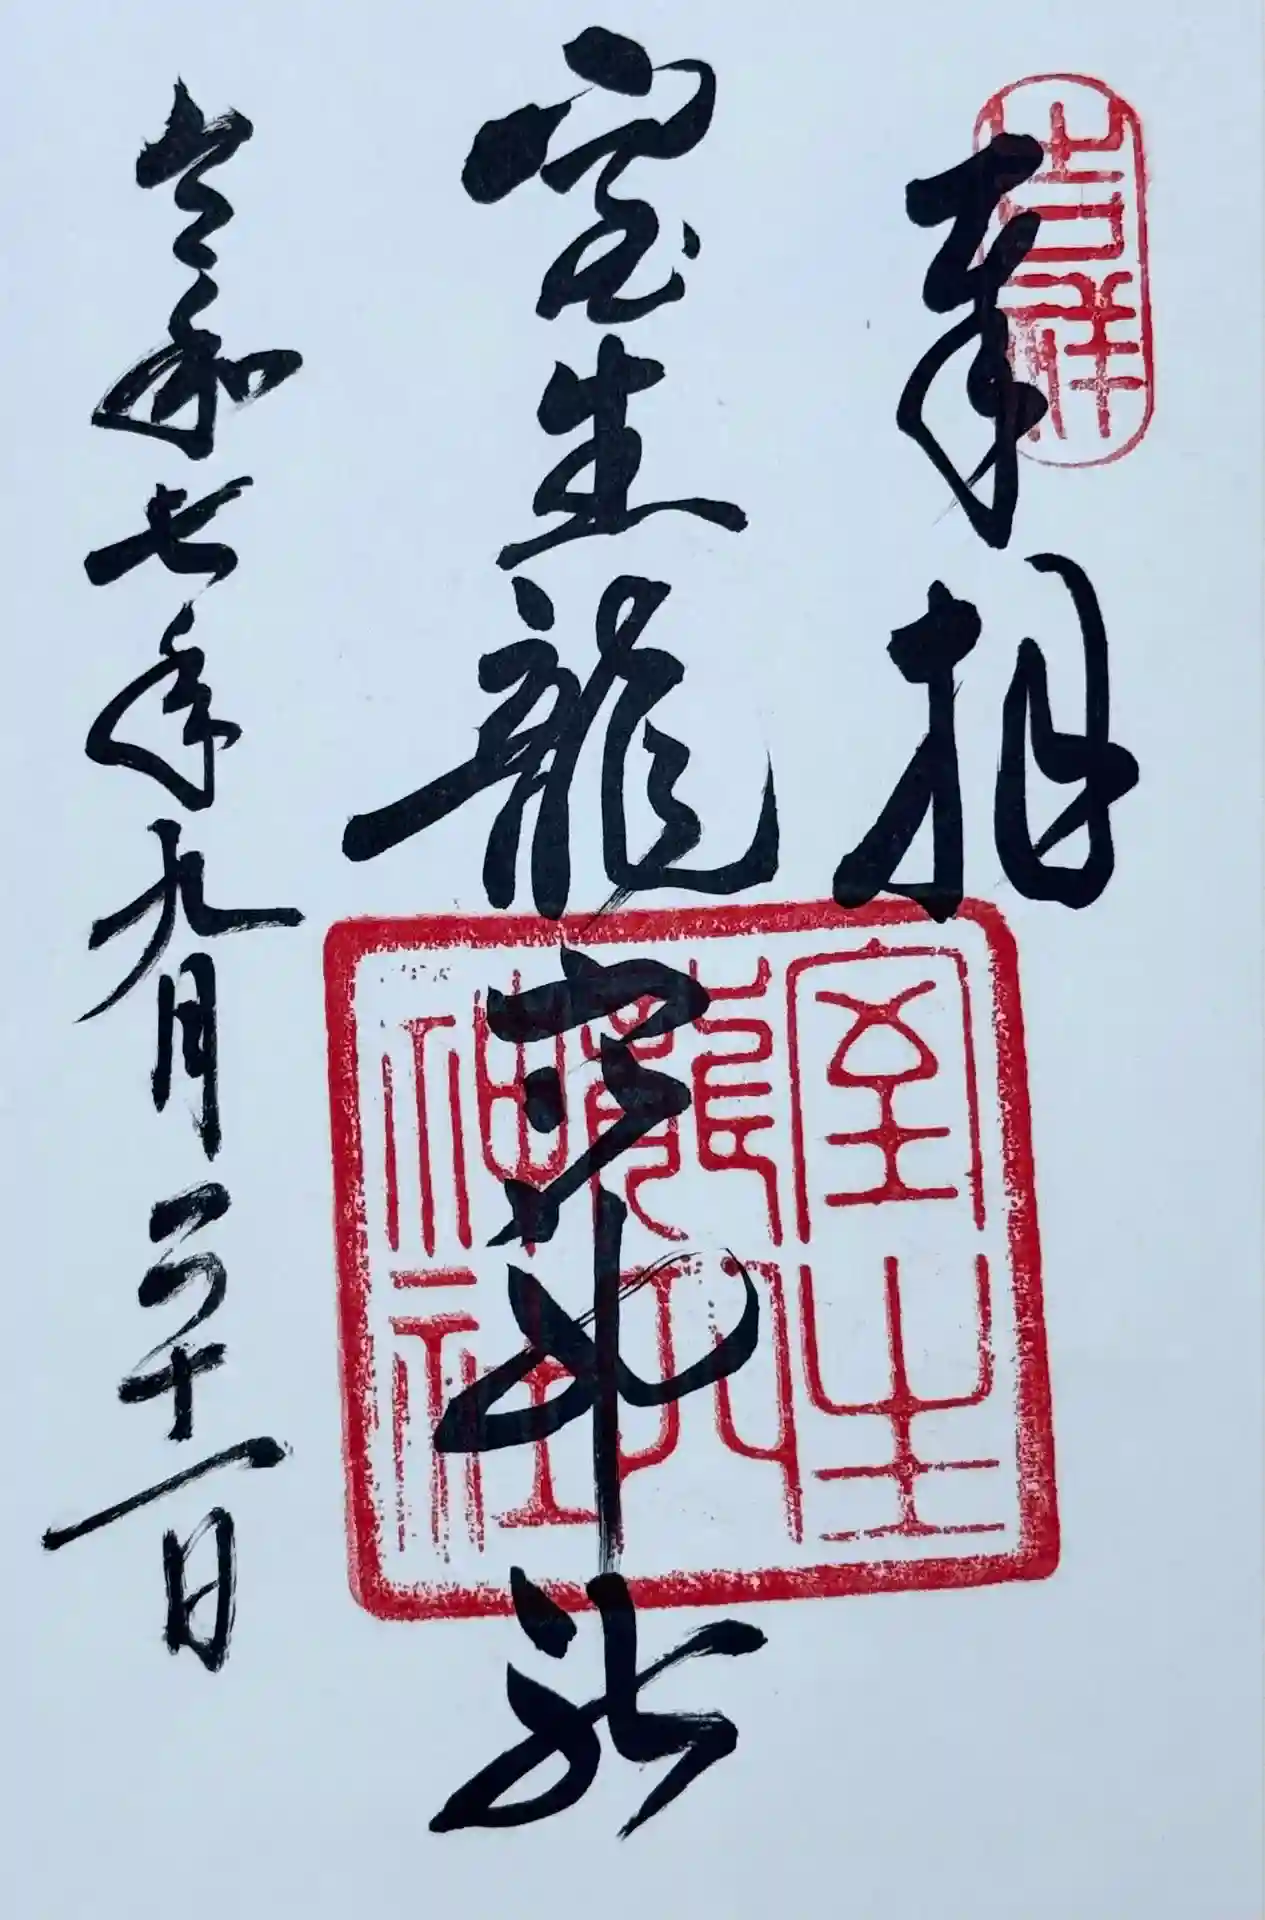 奉拝
吉祥
室生龍穴神社
室生
龍穴
神社
令和七年九月二十一日